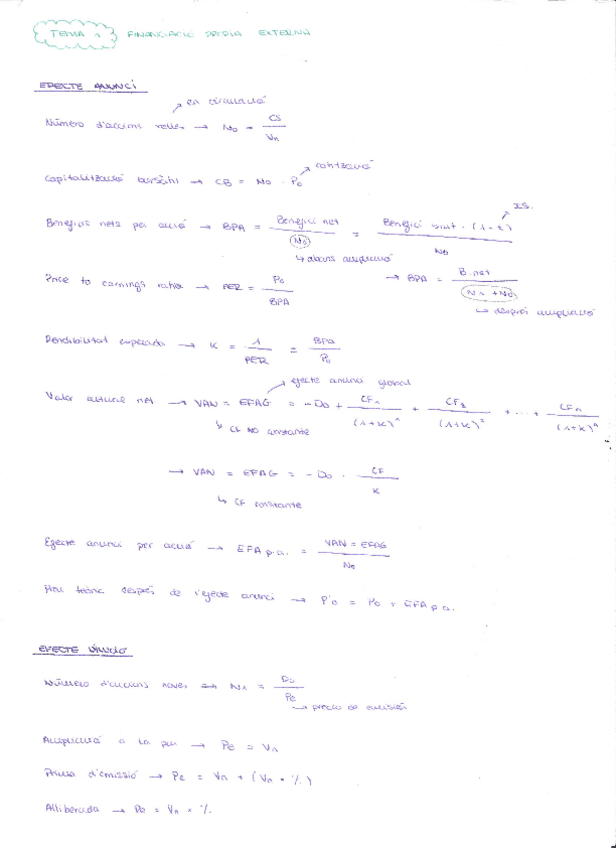 TEMA 1 FINANCIACIÓ PRÒPIA EXTERNA
EFECTE ANUNCI
en circulació
Número d'accions velles → No = CS / Vn
cotització
Capitalització bursàtil → CB = No · Po
IS.
Benefici net per acció → BPA = Benefici net / No = Benefici brut · (1-t) / No
↳ abans ampliació
→ BPA = B. net / (Nn + No)
↳ després ampliació
Price to earnings ratio → PER = Po / BPA
Rendibilitat esperada → K = 1 / PER = BPA / Po
efecte anunci global
Valor actual net → VAN = EFAG = -Do + CF1 / (1+K)^1 + CF2 / (1+K)^2 + ... + CFn / (1+K)^n
↳ CF NO constante
→ VAN = EFAG = -Do · CF / K
↳ CF constante
Efecte anunci per acció → EFA p.a. = VAN = EFAG / No
Preu teòric després de l'efecte anunci → P'o = Po + EFA p.a.
EFECTE DILUCIÓ
Número d'accions noves → Nn = Do / Pe
→ precio de emisión
Ampliació a la par → Pe = Vn
Prima d'emissió → Pe = Vn + (Vn · %)
Alliberada → Pe = Vn × %